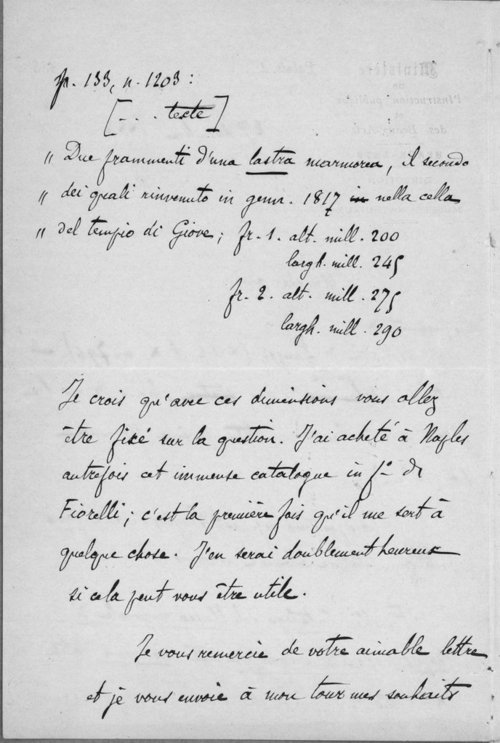 p. 133, n. 1203 :
[ - . . texte ]
" Due frammenti d'una lastra marmorea, il secondo
" dei quali rinvenuto in genn. 1817 in nella cella
" del tempio di Giove ; fr. 1. alt. mill. 200
largh. mill. 245
fr. 2. alt. mill. 275
largh. mill. 290
Je crois qu'avec ces dimensions vous allez
être fixé sur la question. J'ai acheté à Naples
autrefois cet immense catalogue in fº de
Fiorelli ; c'est la première fois qu'il me sert à
quelque chose. J'en serai doublement heureux
si cela peut vous être utile.
Je vous remercie de votre aimable lettre
et je vous envoie à mon tour mes souhaits